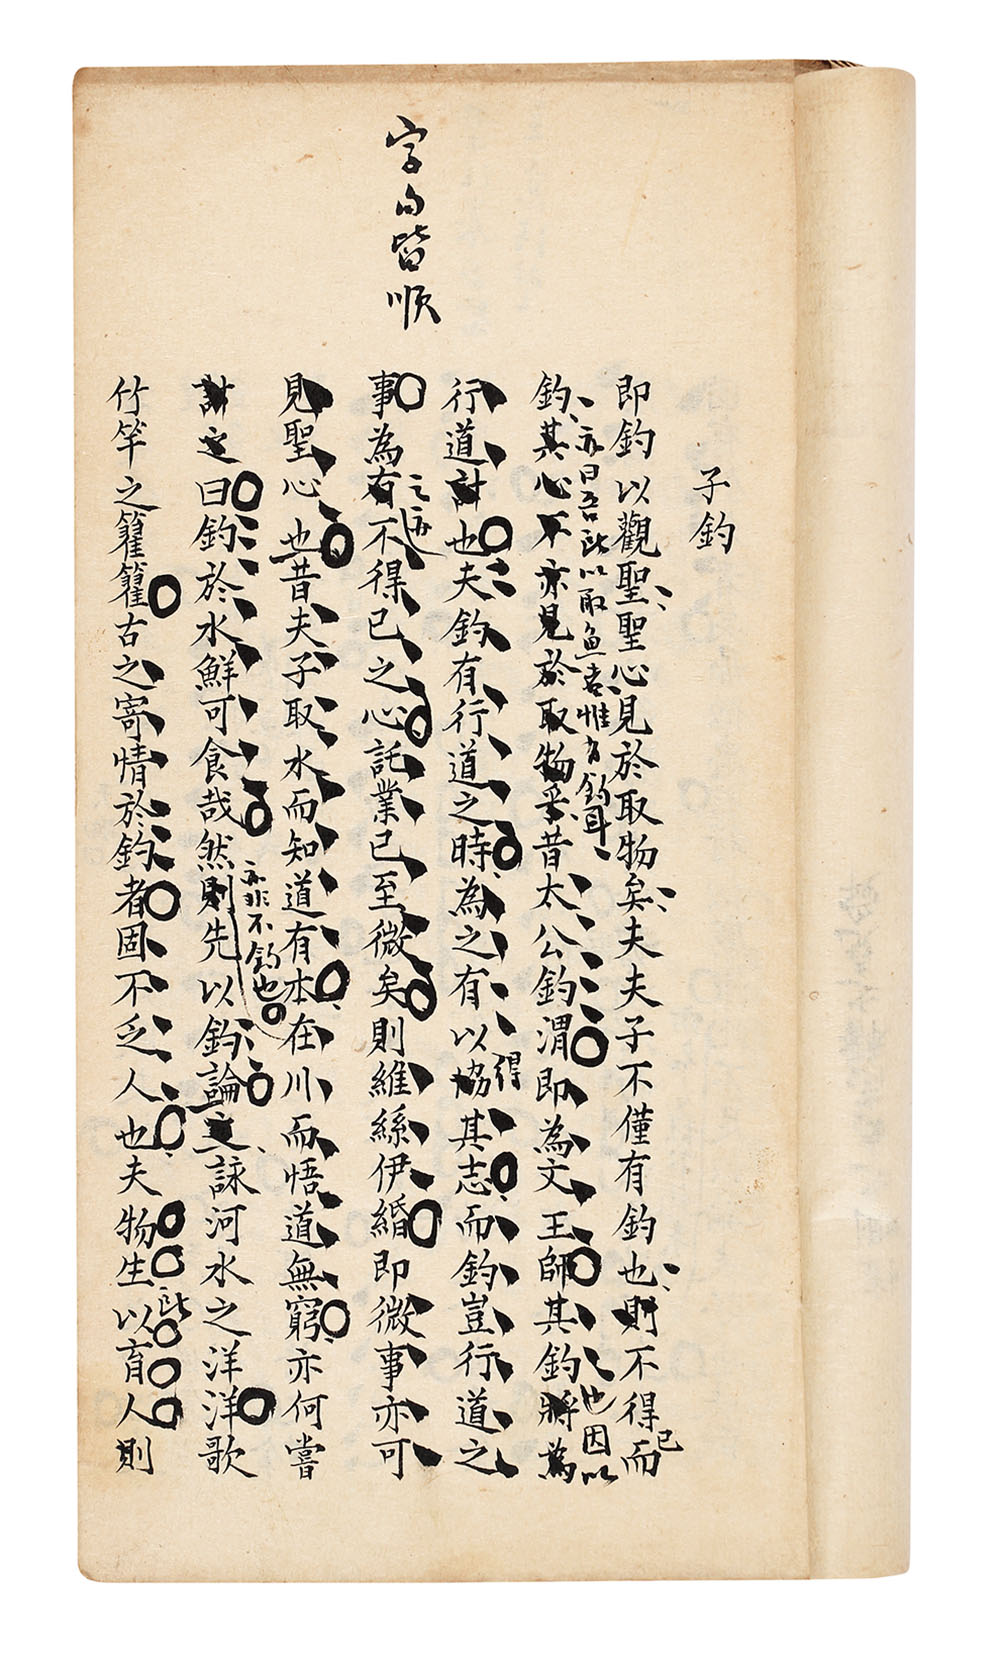 字句皆順
子釣
即釣以觀聖聖心見於取物矣夫夫子不僅有釣也則不得已而
釣其心不亦見於取物乎昔太公釣渭即為文王師其釣將為
亦曰吾以取魚者惟有釣耳
也因以
行道計也夫釣有行道之時為之有以協其志而釣豈行道之
得
事為有不得已之心託業已至微矣則維絲伊緡即微事亦可
見聖心也昔夫子取水而知道有本在川而悟道無窮亦何嘗
計之曰釣於水鮮可食哉然則先以釣論之詠河水之洋洋歌
亦非不釣也
竹竿之籊籊古之寄情於釣者固不乏人也夫物生以育人則
此